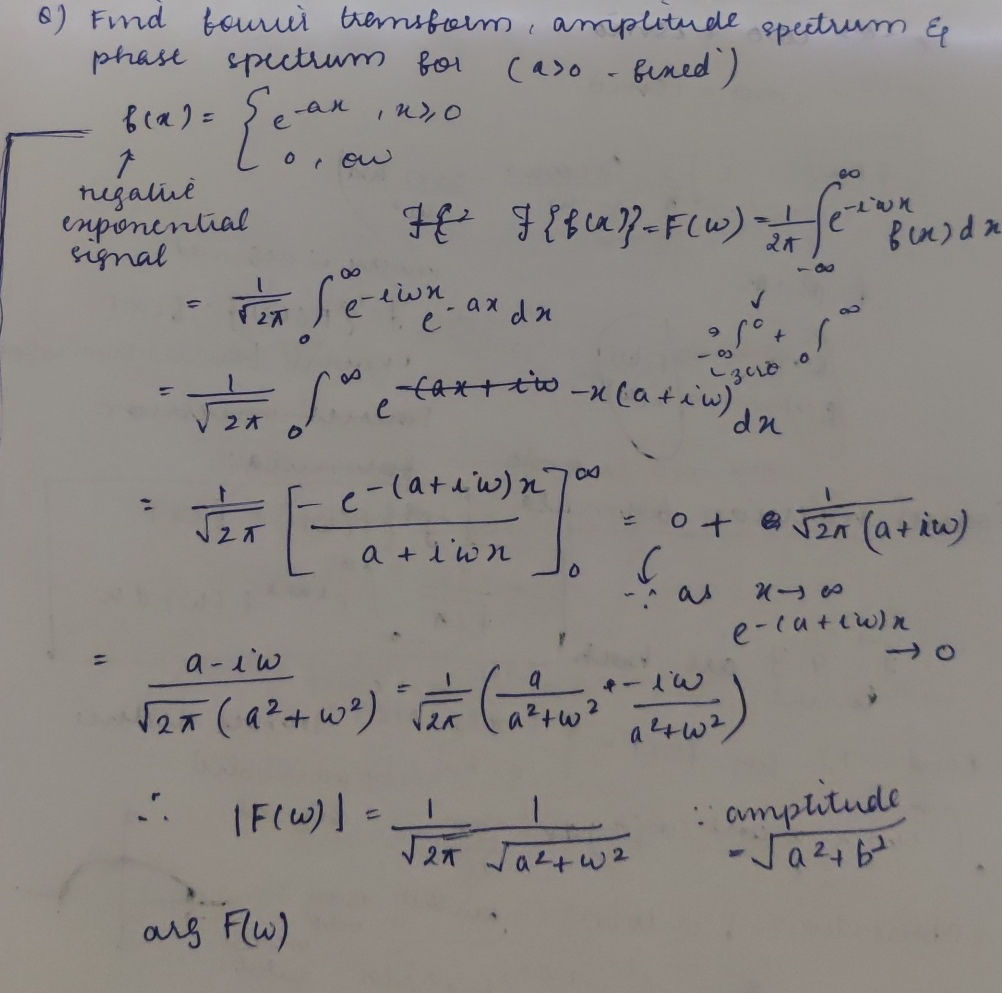 Q) Find fourier transform, amplitude spectrum &
phase spectrum for (a>0 - fixed)
f(x) = { e^-ax , x≥0
0 , ow
↑
negative
exponential
signal
F{f(x)} = F(w) = 1/2π ∫_-∞^∞ e^-iwx f(x) dx
= 1/√2π ∫_0^∞ e^-iwx e^-ax dx
↓
∫_-∞^0 + ∫_0^∞
↳ zero
= 1/√2π ∫_0^∞ e^-x(a+iw) dx
= 1/√2π [ - e^-(a+iw)x / a+iwx ]_0^∞ = 0 + 1/√2π (a+iw)
∵ as x→∞
e^-(a+iw)x
→ 0
= a-iw / √2π (a²+w²) = 1/√2π ( a/a²+w² + - iw/a²+w² )
∴ |F(w)| = 1/√2π 1/√a²+w² ∵ amplitude
= √a²+b²
arg F(w)